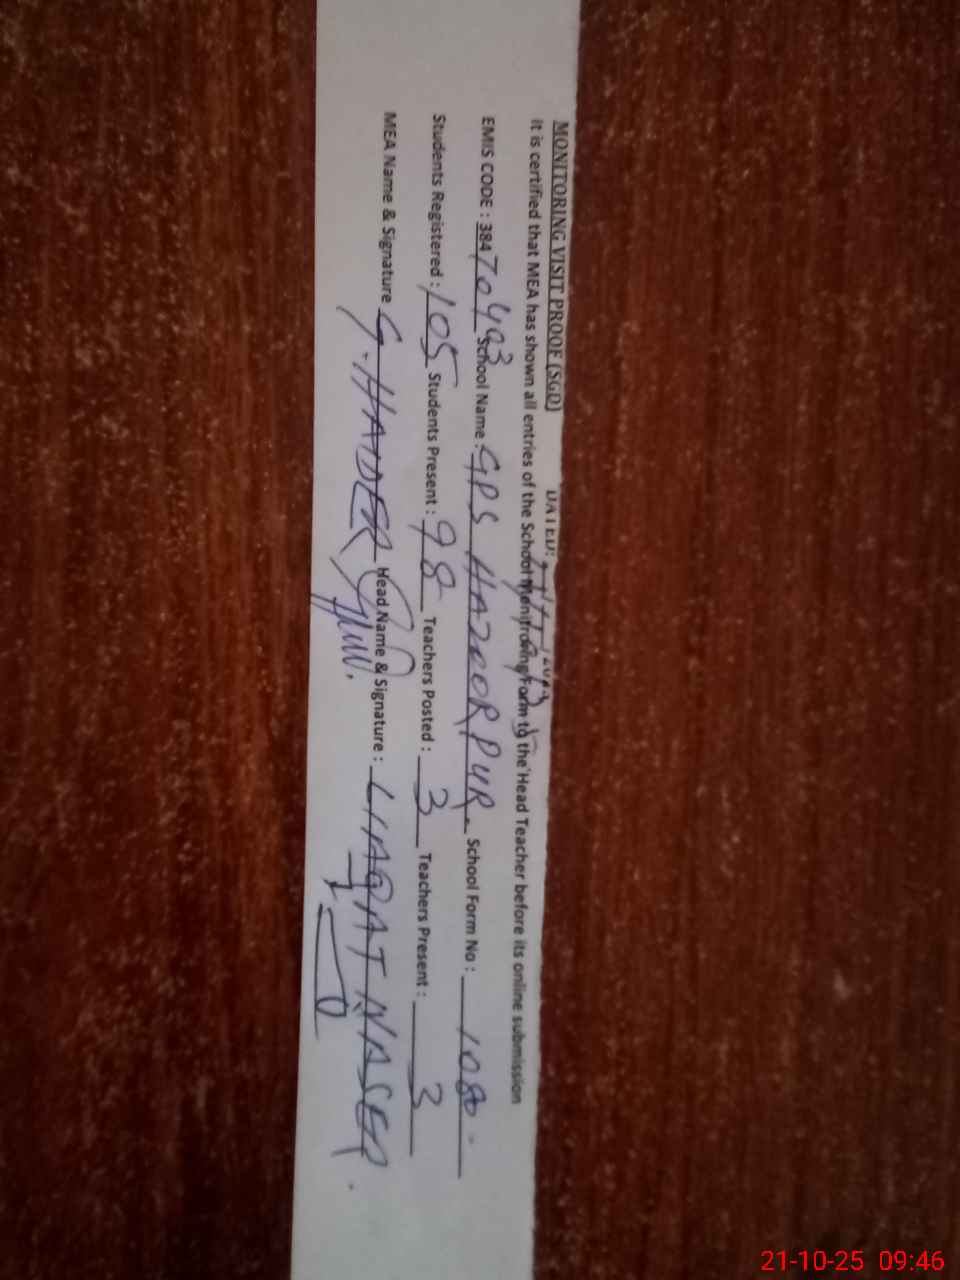 MONITORING VISIT PROOF (SGD) DATED:
It is certified that MEA has shown all entries of the School Monitroring Form to the Head Teacher before its online submission
EMIS CODE : 38470493 School Name : GPS HAZOOR PUR School Form No : 1080
Students Registered : 105 Students Present : 98 Teachers Posted : 3 Teachers Present : 3
MEA Name & Signature G. HAIDER Head Name & Signature : LIAQAT NASER
21-10-25 09:46